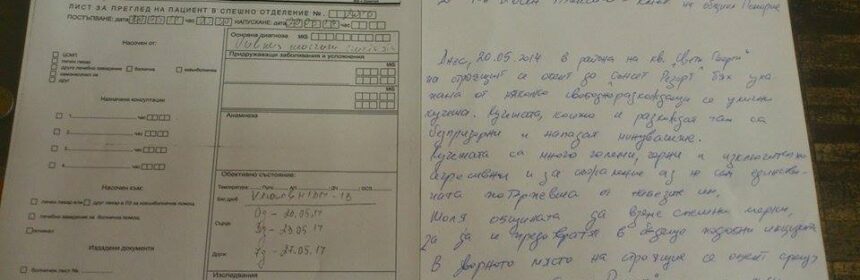 ЛИСТ ЗА ПРЕГЛЕД НА ПАЦИЕНТ В СПЕШНО ОТДЕЛЕНИЕ №
ПОСТЪПВАНЕ: дата час НАПУСКАНЕ: дата час
Насочен от:
ЦСМП
личен лекар
друго лечебно заведение болнична извънболнична
самонасочил се
друг
Назначени консултации
1. час
2. час
3. час
4. час
Насочен към:
личен лекар или друг лекар в ЛЗ за извънболнична помощ
лечебно заведение за болнична помощ
починал
Издадени документи
болничен лист №
Основна диагноза МКБ
Придружаващи заболявания и усложнения
МКБ
Анамнеза
Обективно състояние:
Температура: Пулс: АН: ДЧ:
0д - 20.05.14
3д - 23.05.14
7д - 27.05.14
Други:
Изследвания
на община Поморие
Днес, 20.05.2014 в района на кв. "Свети Георги"
на строящия се обект до "Сънсет Резорт" бях уха
пана от няколко свободноразхождащи се улични
кучета. Кучетата, които се разхождат там са
безпризорни и нападат минувачите.
Кучетата са много големи, черни и изключително
агресивни и за съжаление аз не съм единстве
ната потърпевша от навезите им.
Моля общината да вземе спешни мерки,
за да се предотвратят в бъдеще подобни инциденти
В дворното място на строящия се обект срещу